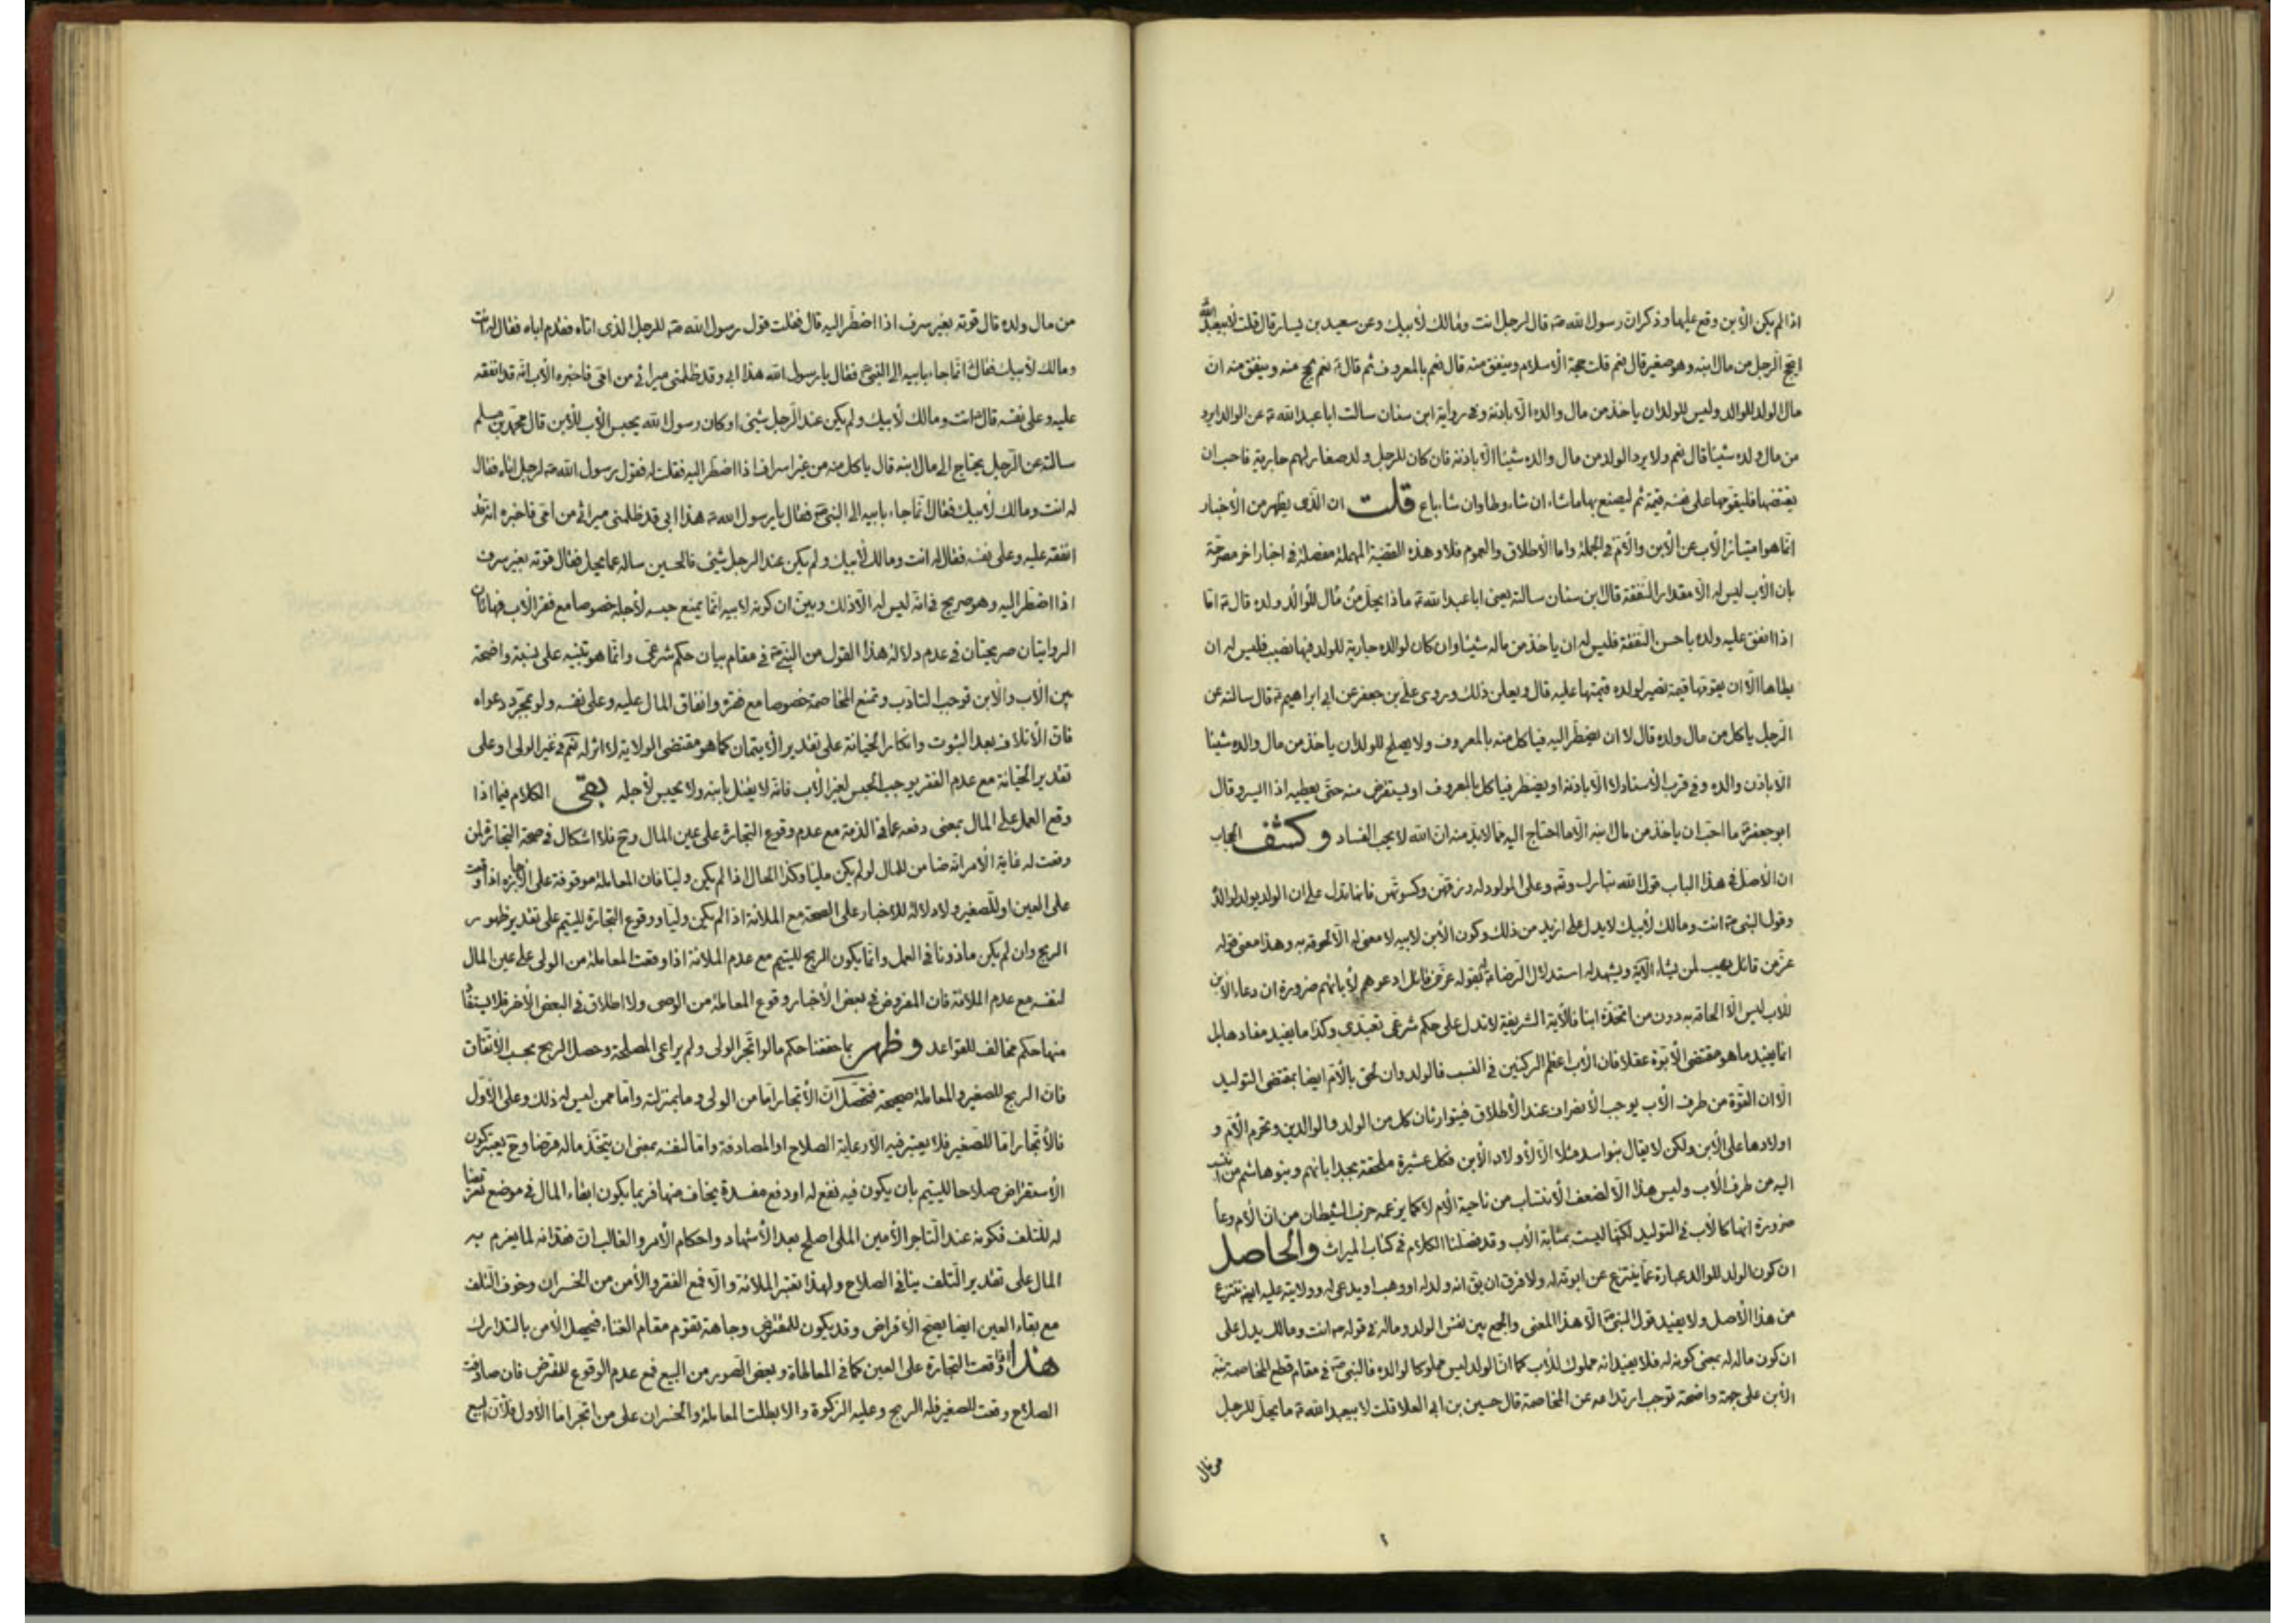 اذا لم يكن الأبن وقع عليها وذكر ان رسول الله ص قال لرجل انت ومالك لأبيك وعن سعيد بن يسار قال قلت لأبيعبد الله
ايحج الرجل من مال ابنه وهو صغير قال نعم قلت حجة الأسلام وينفق منه قال نعم بالمعروف ثم قال ع نعم يحج منه وينفق منه ان
مال الولد للوالد وليس للولد ان ياخذ من مال والده الا باذنه وفي رواية ابن سنان سالت ابا عبد الله ع عن الوالد ايرد
من مال ولده شيئا قال نعم ولا يرد الولد من مال والده شيئا الا باذنه فان كان للرجل ولد صغار لهم جارية فاحب ان
يقتضها فليقومها على نفسه قيمة ثم ليصنع بها ما شاء ان شاء وطا وان شاء باع قلت ان الذي يظهر من الأخبار
انما هو امتياز الأب عن الأبن والأم في الجملة واما الأطلاق والعموم فلا وهذه القضية المهملة مفصلة في اخبار اخر مصرحة
بان الأب ليس له الا مقدار النفقة قال ابن سنان سالته يعني ابا عبد الله ع ماذا يحل من مال للوالد ولده قال ع اما
اذا انفق عليه ولده باحسن النفقة فليس له ان ياخذ من ماله شيئا وان كان لوالده جارية للولد فيها نصيب فليس له ان
يطاها الا ان يقومها قيمة تصير لولده قيمتها عليه قال ويعلن ذلك وروى علي بن جعفر عن ابي ابراهيم ع قال سالته عن
الرجل ياكل من مال ولده قال لا ان يضطر اليه فياكل منه بالمعروف ولا يصلح للولد ان ياخذ من مال والده شيئا
الا باذن والده وفي قرب الأسناد لا الا باذنه او يضطر فياكل بالمعروف او يستقرض منه حتى يعطيه اذا ايسر وقال
ابو جعفر ع ما احب ان ياخذ من مال ابنه الا ما احتاج اليه مما لابد منه ان الله لا يحب الفساد وكشف الحجاب
ان الأصل في هذا الباب قول الله تبارك وتع وعلى المولود له رزقهن وكسوتهن فانما تدل على ان الولد يولد لوالد
وقول النبي ص انت ومالك لأبيك لا يدل على ازيد من ذلك وكون الأبن لابيه لا معنى له الا لحوقه به وهذا معنى قوله
عز من قائل يهب لمن يشاء الأية ويشهد له استدلال الرضا ع بقوله عز من قائل ادعوهم لأبائهم ضرورة ان دعاء الأبن
للأب ليس الا الحاقه به دون من اتخذه ابنا فالأية الشريفة لا تدل على حكم شرعي تعبدي وكذا ما يفيد مفادها بل
انما يفيد ما هو مقتضى الأبوة عقلا فان الأب اعظم الركنين في النسب فالولد وان لحق بالأم ايضا بمقتضى التوليد
الا ان القوة من طرف الأب يوجب الأنصراف عند الأطلاق فيتوارثان كل من الولد والوالدين وتحرم الأم و
اولادها على الأبن ولكن لا يقال بنو اسد مثلا الا لأولاد الأبن فكل عشيرة ملحقة بجد ابائهم وبنو هاشم من انتسب
اليه من طرف الأب وليس هذا الا لضعف الأنتساب من ناحية الأم لا كما يزعمه حزب الشيطان من ان الأم وعاء
ضرورة انها كالأب في التوليد لكنها ليست بمثابة الأب وقد فصلنا الكلام في كتاب الميراث والحاصل
ان كون الولد للوالد عبارة عما ينتزع عن ابوته له ولا فرق ان يق انه ولد له او وهب او يدعى له وولايته عليه ايضا تنتزع
من هذا الأصل ولا يفيد قول النبي ص الا هذا المعنى والجمع بين نفس الولد وماله في قوله ص انت ومالك يدل على
ان كون ماله له بمعنى كونه له فلا يفيد انه مملوك للأب كما ان الولد ليس مملوكا لوالده فالنبي ص في مقام قطع المخاصمة نبه
الأبن على جهة واضحة توجب ارتداعه عن المخاصمة قال حسين بن ابي العلا قلت لابيعبد الله ع ما يحل للرجل
من مال
من مال ولده قال قوته بغير سرف اذا اضطر اليه قال فقلت قول رسول الله ص للرجل الذي اتاه فقدم اباه فقال له انت
ومالك لأبيك فقال انما جاء بابيه الى النبي ص فقال يا رسول الله هذا ابي وقد ظلمني ميراثي من امي فاخبره الأب انه قد انفقه
عليه وعلى نفسه قال ص انت ومالك لأبيك ولم يكن عند الرجل شيئ او كان رسول الله يحبس الأب للأبن قال محمد بن مسلم
سالته عن الرجل يحتاج الى مال ابنه قال ياكل منه من غير اسراف اذا اضطر اليه فقلت له فقول رسول الله ص لرجل اتاه فقال
له انت ومالك لأبيك فقال انما جاء بابيه الى النبي ص فقال يا رسول الله ص هذا ابي قد ظلمني ميراثي من امي فاخبره انه قد
انفقه عليه وعلى نفسه فقال له انت ومالك لأبيك ولم يكن عند الرجل شيئ فالحسين ساله عما يحل فقال قوته بغير سرف
اذا اضطر اليه وهو صريح في انه ليس له الا ذلك وبين ان كونه لابيه انما يمنع حبسه لأجله خصوصا مع فقر الأب فهاتان
الروايتان صريحتان في عدم دلالة هذا القول من النبي ص في مقام بيان حكم شرعي وانما هو تنبيه على نسبة واضحة
بين الأب والأبن توجب التادب وتمنع المخاصمة خصوصا مع فقره وانفاق المال عليه وعلى نفسه ولو بمجرد دعواه
فان الأتلاف بعد الثبوت وانكار الخيانة على تقدير الأيتمان كما هو مقتضى الولاية لا اثر له نعم في غير الولي او على
تقدير الخيانة مع عدم الفقر يوجب الحبس لغير الأب فانه لا يقتل بابنه ولا يحبس لأجله بقي الكلام فيما اذا
وقع العمل على المال بمعنى دفعه عما في الذمة مع عدم وقوع التجارة على عين المال وح فلا اشكال في صحة التجارة لمن
وقعت له غاية الأمر انه ضامن للمال لو لم يكن مليا وكذا الحال اذا لم يكن وليا فان المعاملة موقوفة على الأجازة اذا وقعت
على العين او للصغير ولا دلالة للاخبار على الصحة مع الملائة اذا لم يكن وليا ووقوع التجارة لليتيم على تقدير ظهور
الربح وان لم يكن ماذونا في العمل وانما يكون الربح لليتيم مع عدم الملائة اذا وقعت المعاملة من الولي على عين المال
لنفسه مع عدم الملائة فان المفروض في بعض الأخبار وقوع المعاملة من الوصي ولا اطلاق في البعض الأخر فلا يستفاد
منها حكم مخالف للقواعد وظهر بما حققنا حكم ما لو اتجر الولي ولم يراعي المصلحة وحصل الربح بحسب الأتفاق
فان الربح للصغير والمعاملة صحيحة فتحصل ان الأتجار اما من الولي وما بمنزلته واما ممن ليس له ذلك وعلى الأول
فالأتجار اما للصغير فلا يعتبر فيه الا رعاية الصلاح او المصادفة واما لنفسه بمعنى ان يتخذ ماله قرضا وح يعتبر كون
الأستقراض صلاحا لليتيم بان يكون فيه نفع له او دفع مفسدة يخاف منها فربما يكون ابقاء المال في موضع تعريضا
له للتلف فكونه عند التاجر الأمين الملي اصلح بعد الأشهاد واحكام الأمر والغالب ان فقدانه لما يغرم به
المال على تقدير التلف ينافي الصلاح ولهذا تعتبر الملائة والا فمع الفقر والأمن من الخسران وخوف التلف
مع بقاء العين ايضا يصح الأقراض وقد يكون للمقترض وجاهة تقوم مقام الغناء فيحصل الأمن بالتدارك
هذا اذا وقعت التجارة على العين كما في المعاطاة وبعض الصور من البيع فمع عدم الوقوع للمقترض فان صادفت
الصلاح وقعت للصغير فله الربح وعليه الزكوة والا بطلت المعاملة والخسران على من اتجر اما الأول فلأن البيع